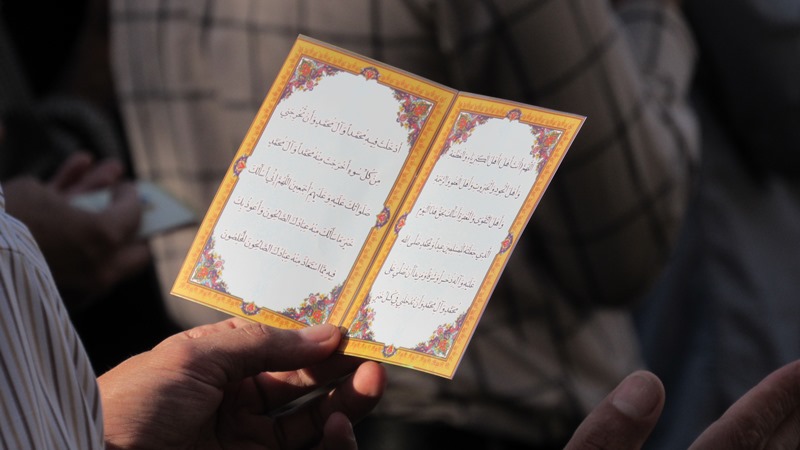 اللهم اهل الكبرياء والعظمة
واهل الجود والجبروت واهل العفو والرحمة
واهل التقوى والمغفرة اسألك بحق هذا اليوم
الذي جعلته للمسلمين عيداً ولمحمد صلى الله
عليه وآله ذخراً وشرفاً ومزيداً ان تصلي على
محمد وآل محمد وان تدخلني في كل خير
ادخلت فيه محمداً وآل محمد وان تخرجني
من كل سوء اخرجت منه محمداً وآل محمد
صلواتك عليه وعليهم اجمعين اللهم اني اسألك
خير ما سألك منه عبادك الصالحون واعوذ بك
فيه مما استعاذ منه عبادك الصالحون المخلصون